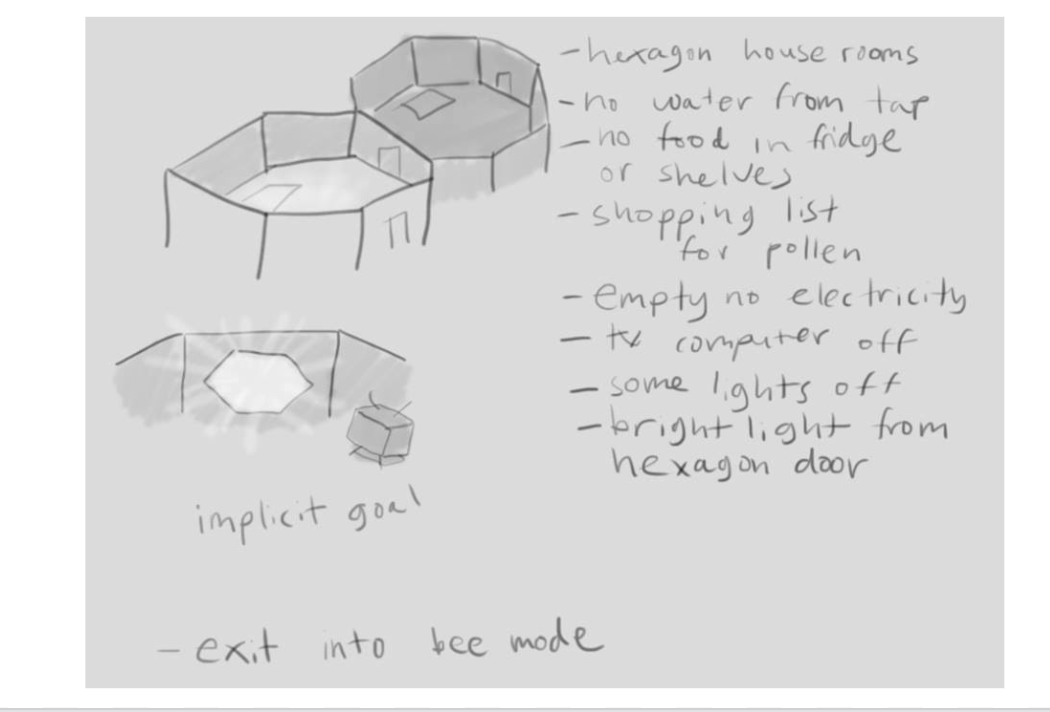 - hexagon house rooms
- no water from tap
- no food in fridge
or shelves
- shopping list
for pollen
- empty no electricity
- tv computer off
- some lights off
- bright light from
hexagon door
implicit goal
- exit into bee mode